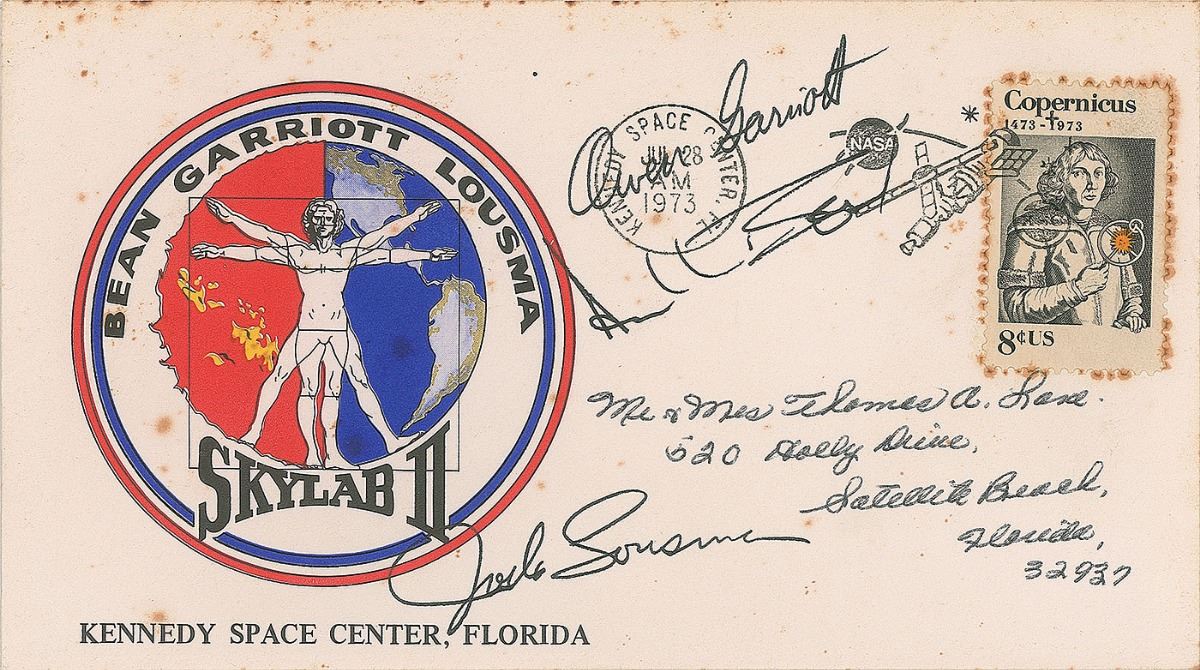 BEAN GARRIOTT LOUSMA
SKYLAB II
KENNEDY SPACE CENTER, FLORIDA
Owen Garriott
KENNEDY SPACE CENTER, FL
JUL 28
AM
1973
NASA
Copernicus
1473-1973
8¢US
Jack Lousma
Mr & Mrs Thomas A.
520 Holly Drive,
Satellite Beach,
Florida,
32937